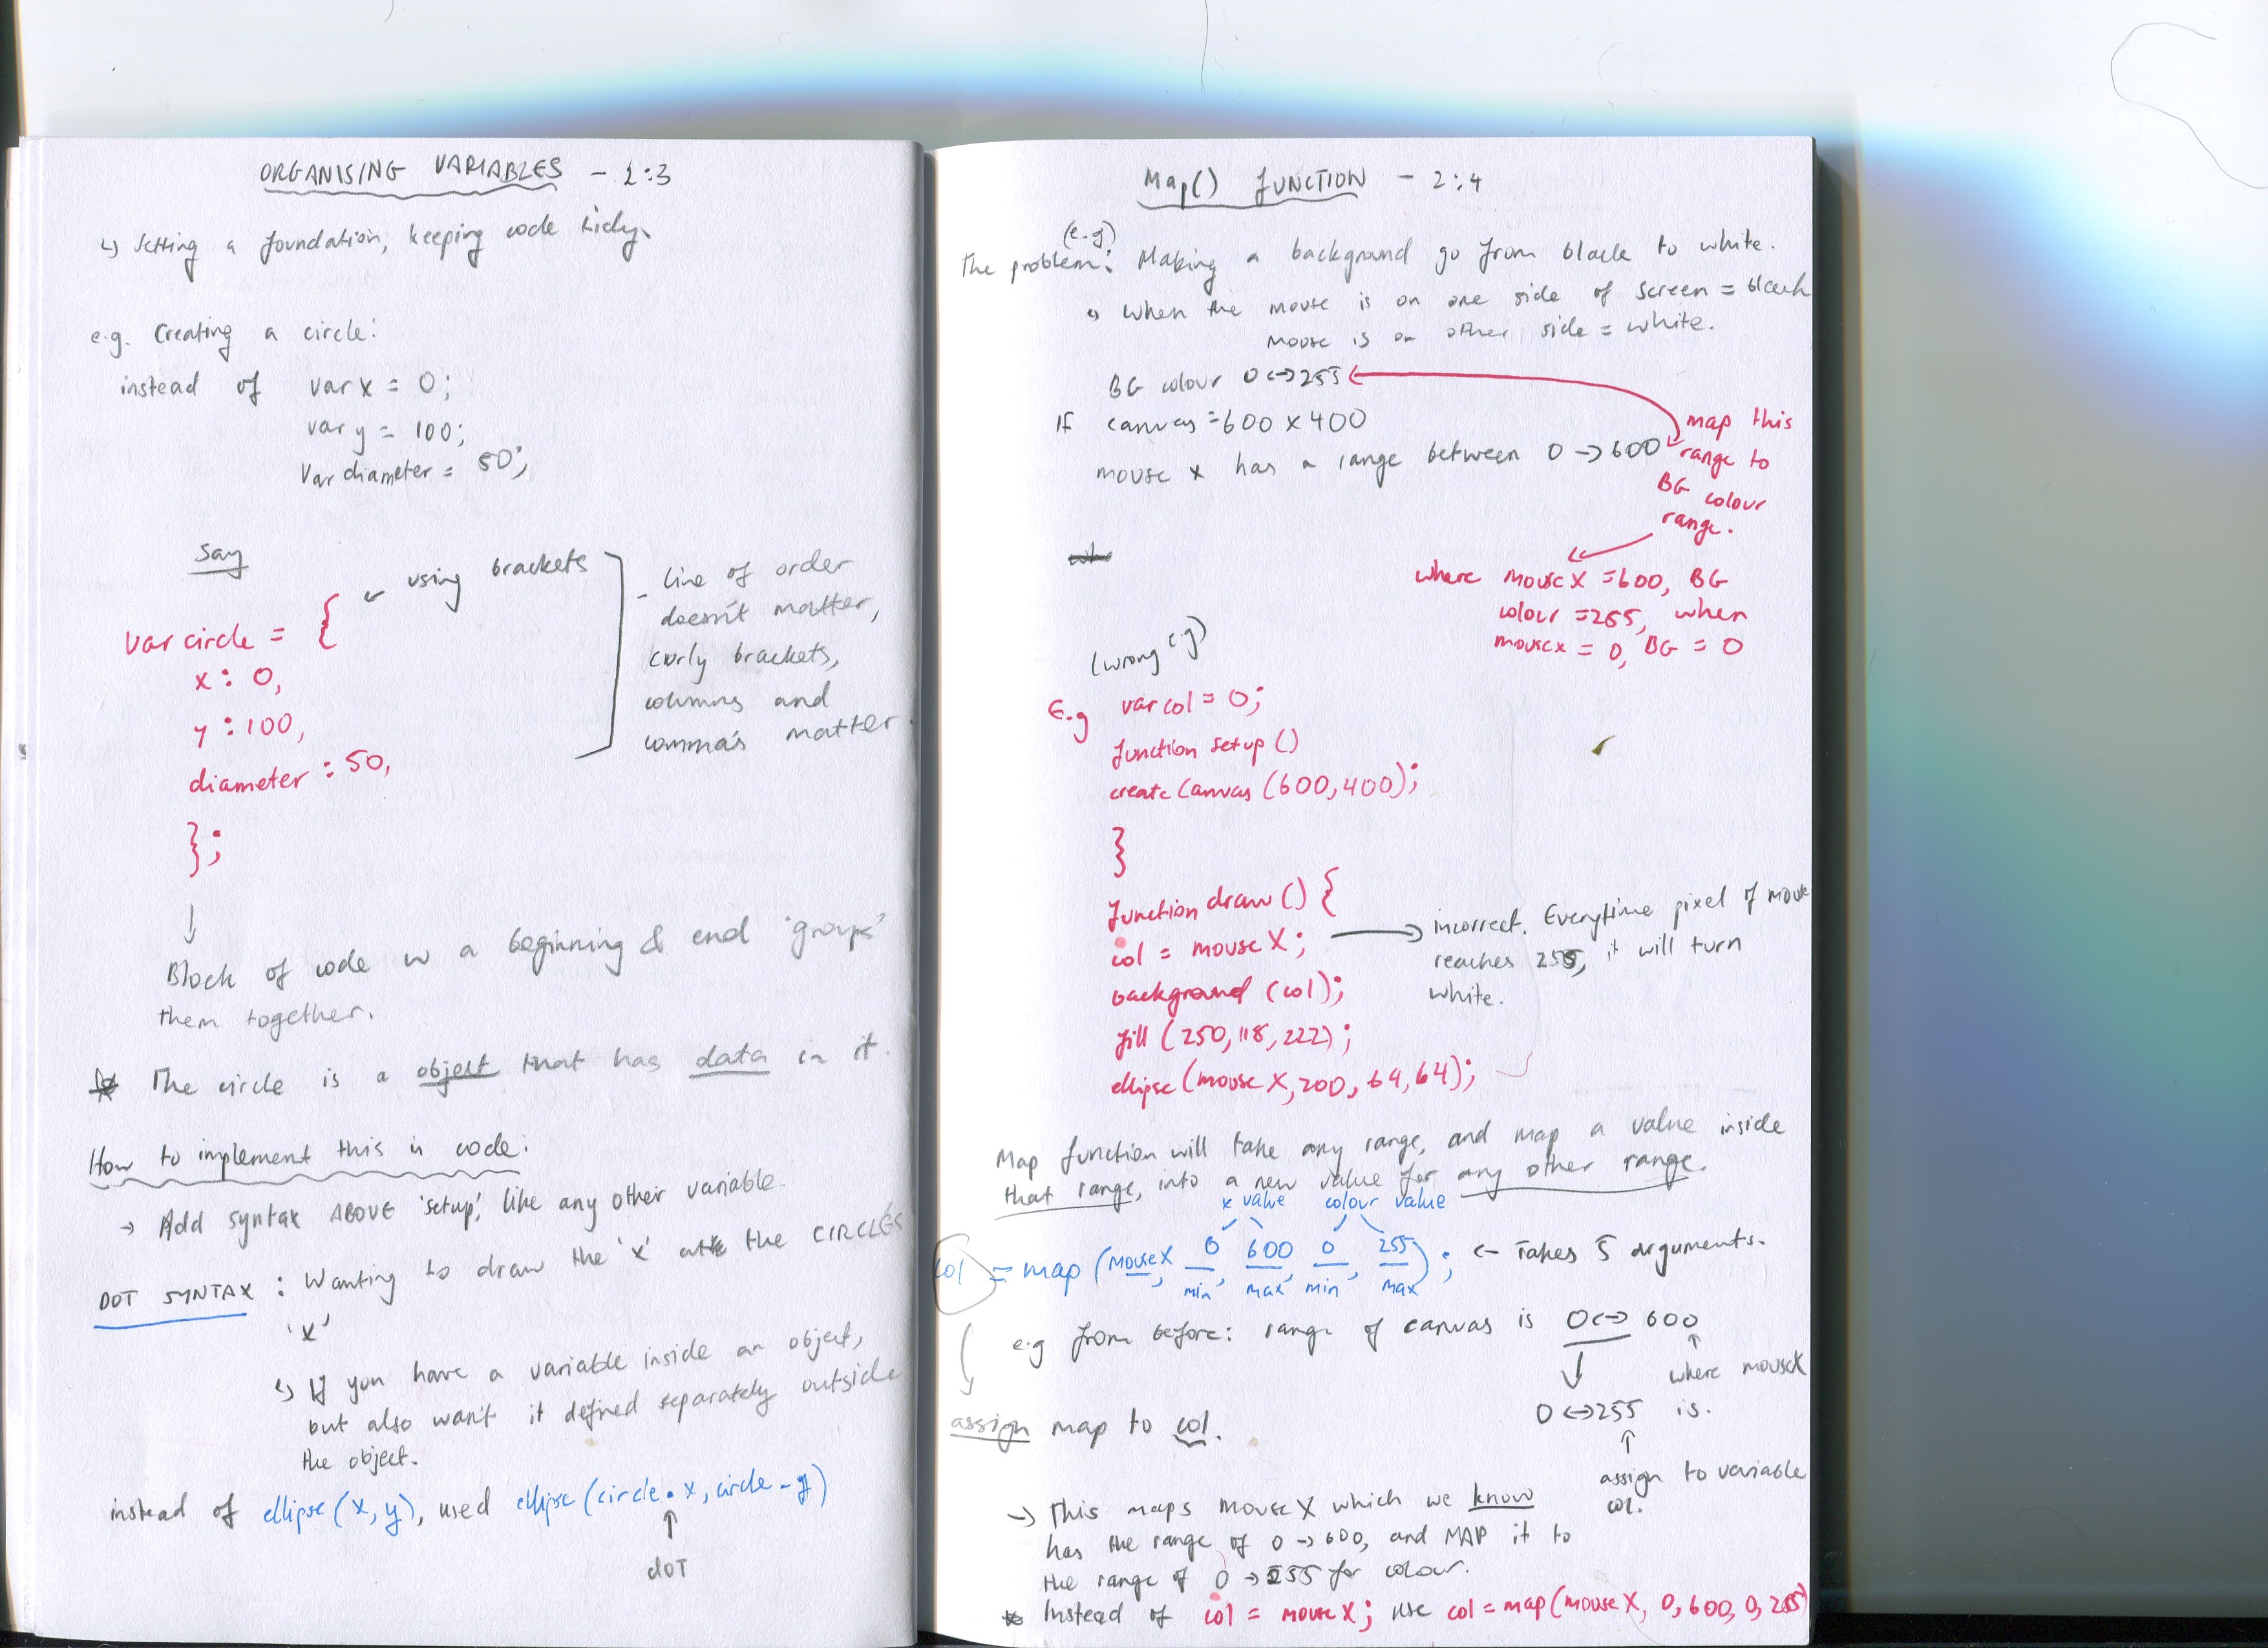 ORGANISING VARIABLES - 2:3
↳ Setting a foundation, keeping code tidy.
e.g. Creating a circle:
instead of var x = 0;
var y = 100;
Var diameter = 50;
Say
← using brackets
var circle = {
x : 0,
y : 100,
diameter : 50,
};
- Line of order
doesn't matter,
curly brackets,
columns and
comma's matter.
↓
Block of code w a beginning & end 'groups'
them together.
* The circle is a object that has data in it.
How to implement this in code:
→ Add syntax ABOVE 'setup', like any other variable.
DOT SYNTAX : Wanting to draw the 'x' at the CIRCLES
'x'
↳ If you have a variable inside an object,
but also want it defined separately outside
the object.
instead of ellipse(x, y), used ellipse(circle.x, circle.y)
↑
dOT
Map() FUNCTION - 2:4
(e.g)
The problem: Making a background go from black to white.
↳ When the mouse is on one side of screen = black
mouse is on other side = white.
BG colour 0 ↔ 255
If canvas = 600 x 400
mouse x has a range between 0 → 600
map this
range to
BG colour
range.
where mouse X = 600, BG
colour = 255, when
mouse x = 0, BG = 0
(wrong e.g)
E.g var col = 0;
function setup ()
create Canvas (600, 400);
}
function draw () {
col = mouse X; → incorrect. Everytime pixel of mouse
reaches 255, it will turn
white.
background (col);
fill (250, 118, 222);
ellipse (mouse X, 200, 64, 64);
Map function will take any range, and map a value inside
that range, into a new value for any other range.
x value colour value
col = map (mouseX, 0, 600, 0, 255); ← Takes 5 arguments.
min max min max
e.g from before: range of canvas is 0 ↔ 600
↓ ↑
where mouseX
0 ↔ 255 is.
↑
assign map to col.
assign to variable
col.
→ This maps mouse X which we know
has the range of 0 → 600, and MAP it to
the range of 0 → 255 for colour.
* Instead of col = mouse X; use col = map(mouse X, 0, 600, 0, 255)